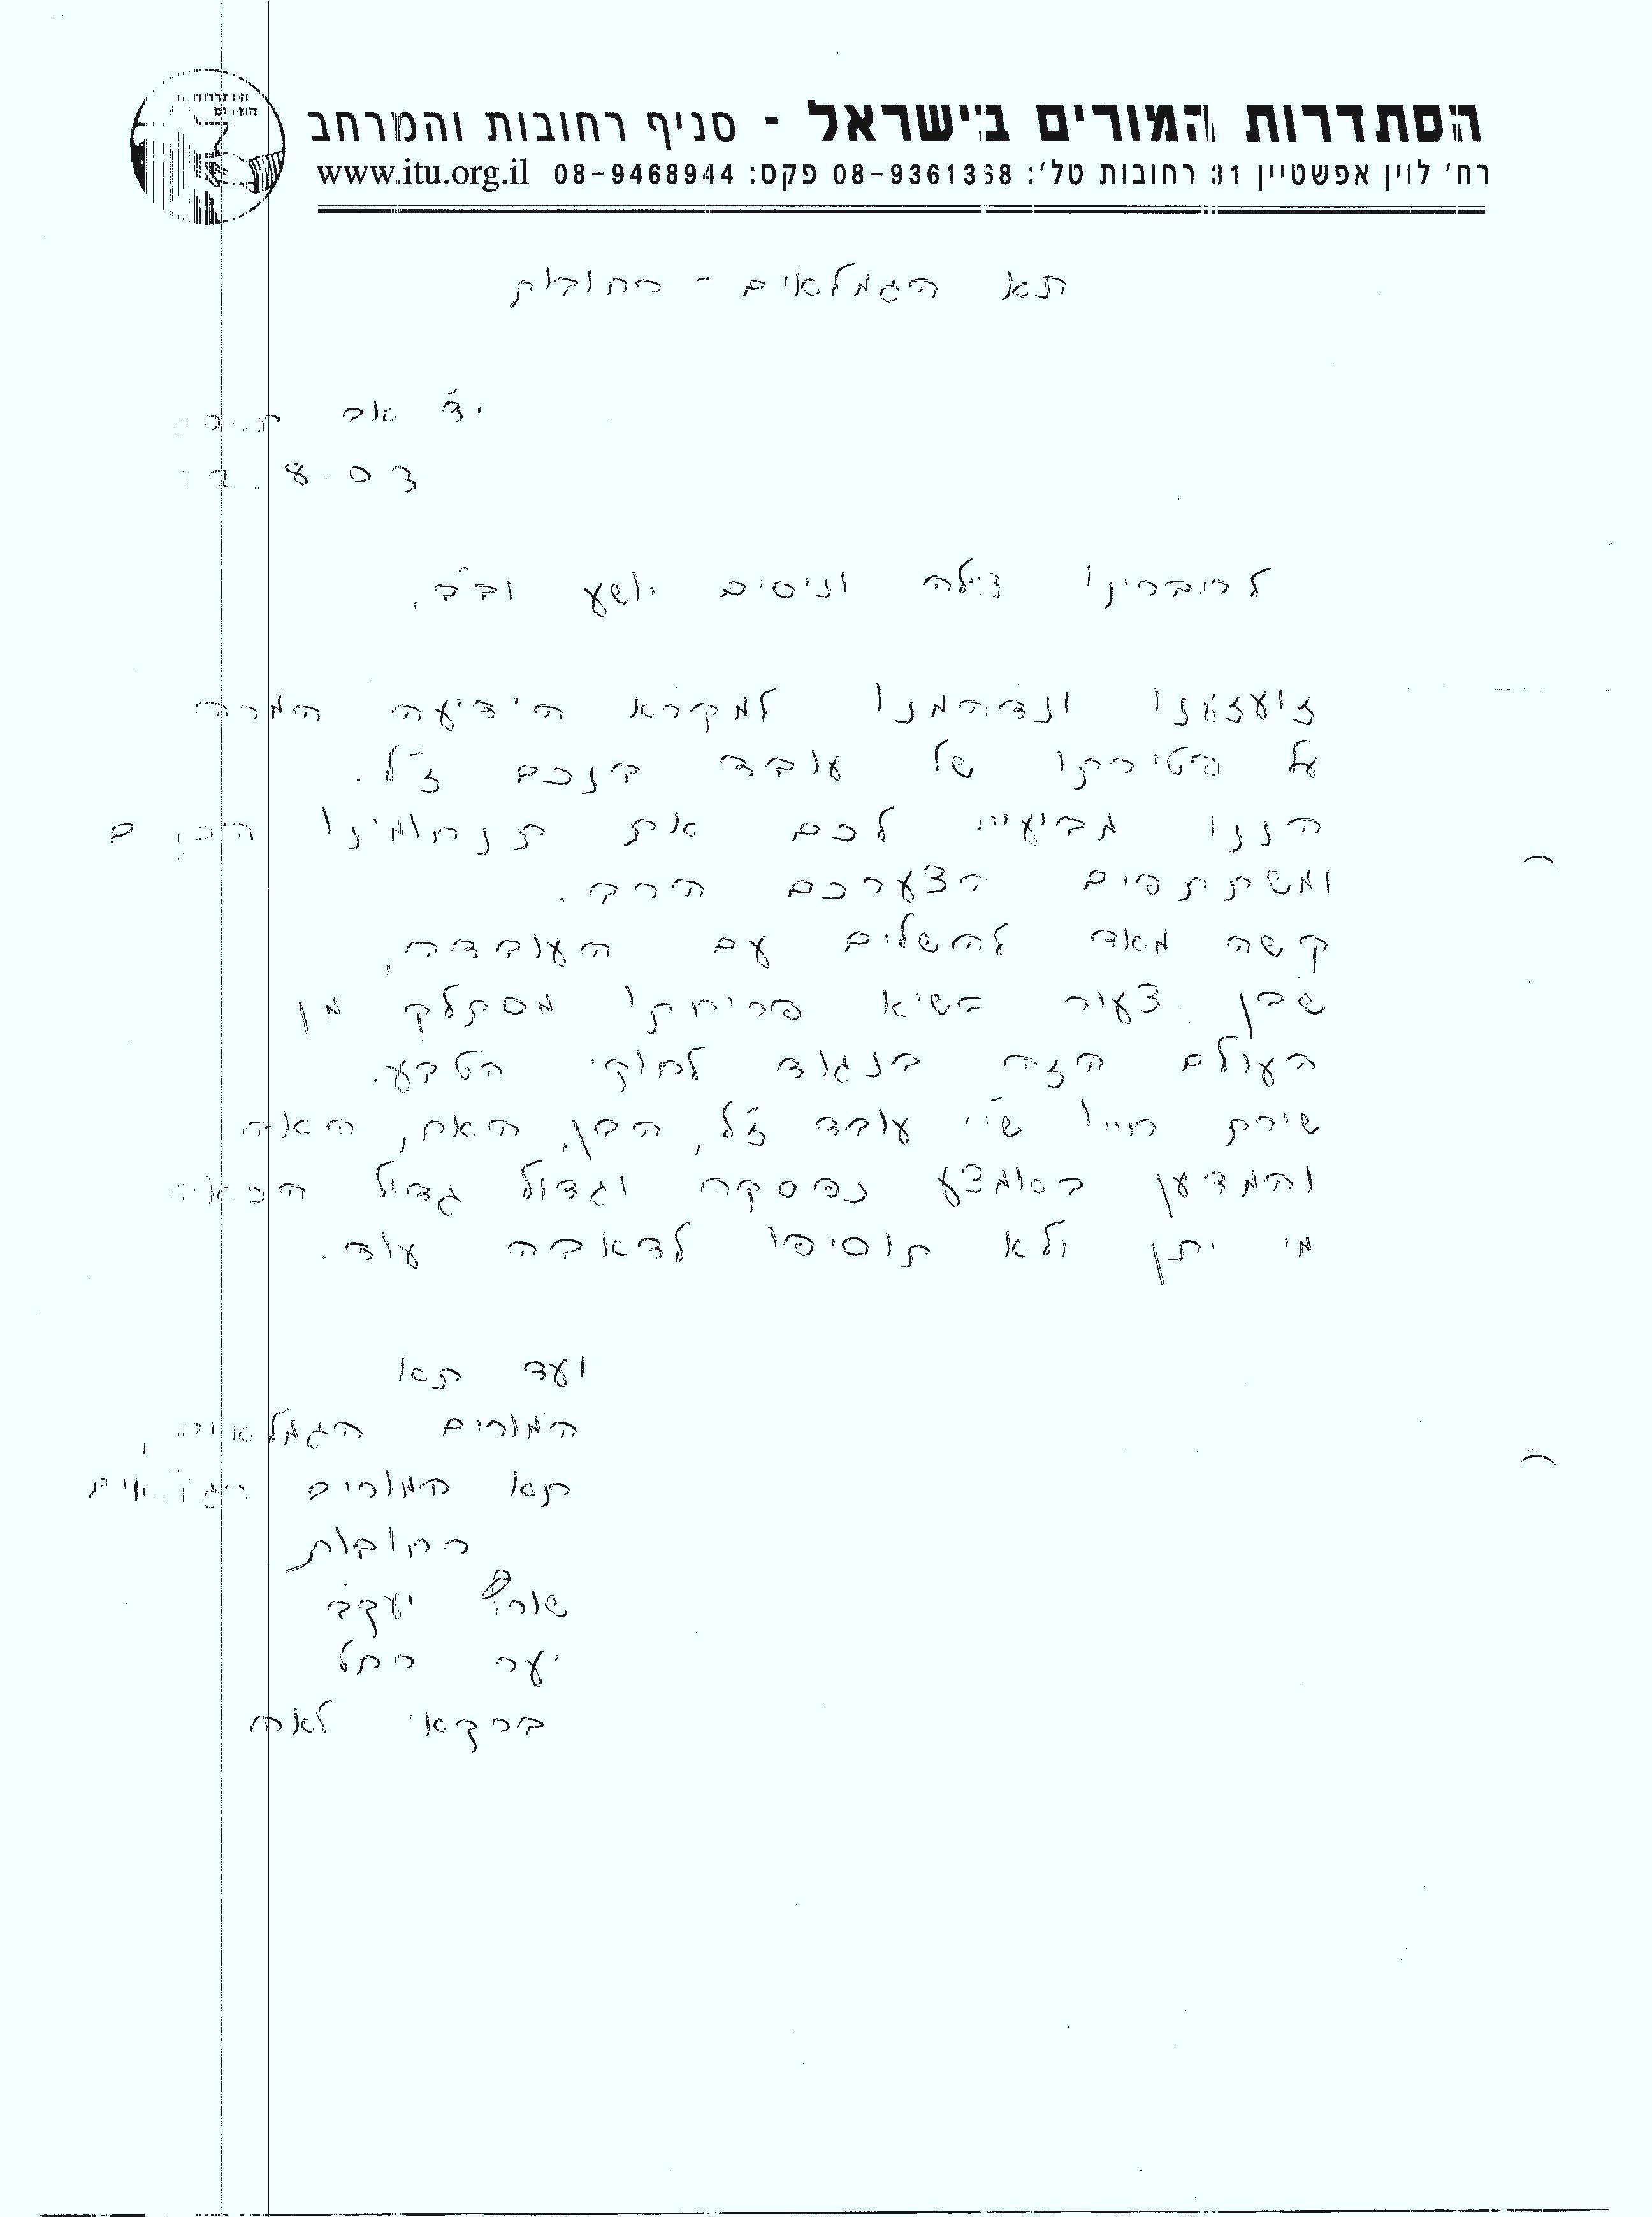 הסתדרות המורים בישראל - סניף רחובות והמרחב
רח' לוין אפשטיין 31 רחובות טל': 08-9361368 פקס: 08-9468944 www.itu.org.il
תא הגמלאים - רחובות
י"ד אב
12.8.03
לחברינו צילה וניסים יושע וב"ב.
זועזענו ונדהמנו למקרא הידיעה המרה
על פטירתו של עובד בנכם ז"ל.
הננו מביעים לכם את תנחומינו הכנים
ומשתתפים בצערכם הרב.
קשה מאד להשלים עם העובדה,
שבן צעיר בשיא פריחתו מסתלק מן
העולם הזה בנגוד לחוקי הטבע.
שירת חייו של עובד ז"ל, הבן, האח, האב
והמדען באמצע נפסקה וגדול גדול הכאב.
מי יתן ולא תוסיפו לדאבה עוד.
ועד תא
המורים הגמלאים,
תא המורים הגמלאים
רחובות
יעקב
יער רחל
ברקאי לאה